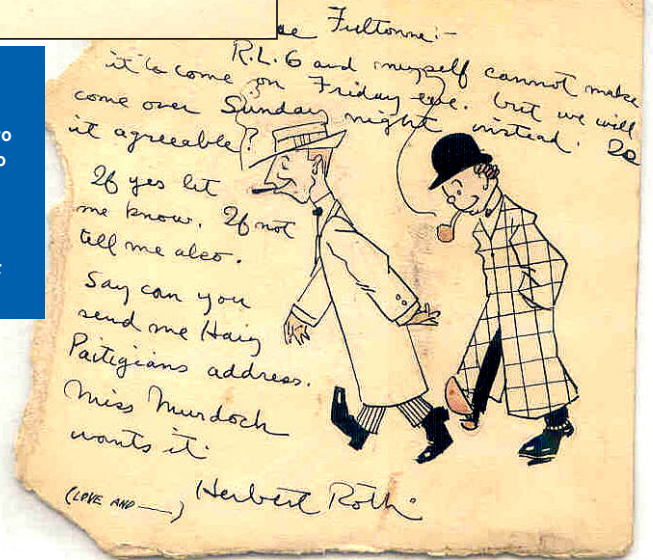 Fultonne:-
R.L.G and myself cannot make
it to come on Friday eve. but we will
come over Sunday night instead. Is
it agreeable?
If yes let
me know. If not
tell me also.
Say can you
send me Haig
Patigians address.
Miss Murdoch
wants it.
(LOVE AND —)
Herbert Roth.